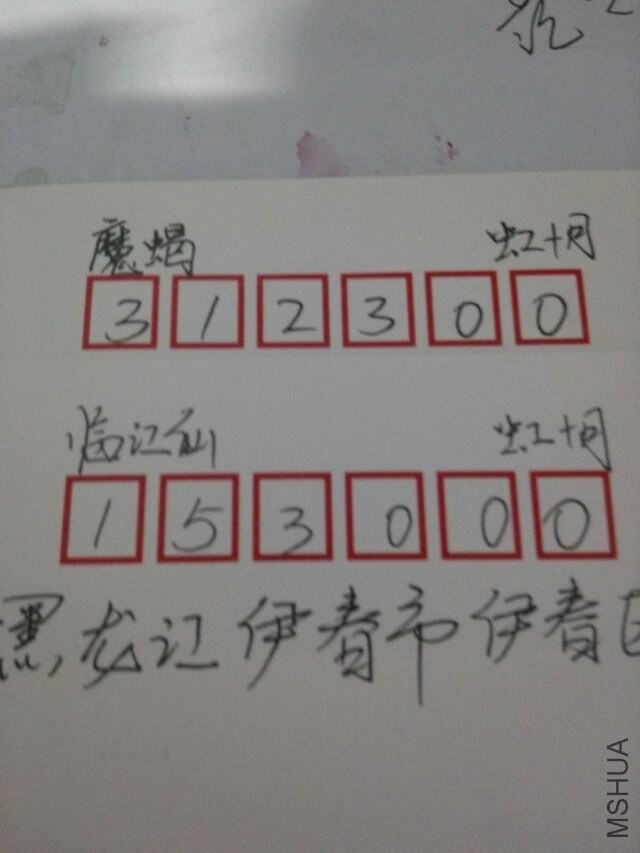 魔蝎 虹十月
312300
临江仙 虹十月
153000
黑龙江伊春市伊春
MSHUA